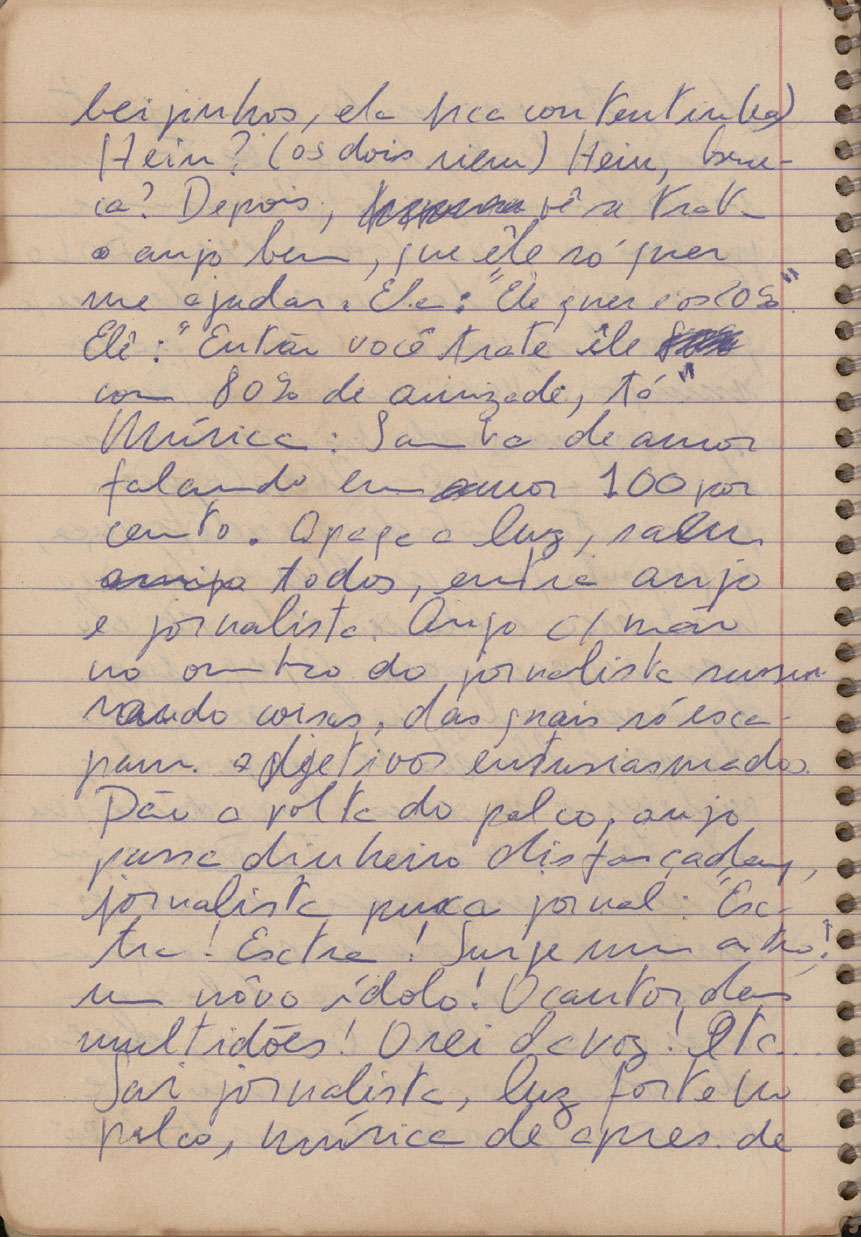 beijinhos, ela fica contentinha)
Hein? (os dois riem) Hein, bru-
ca? Depois, vê se trata
o anjo bem, que êle só quer
me ajudar. Ela: "Ele quer é os 20%"
Ele: "Então você trate êle
com 80% de amizade, tá"
Música: Samba de amor
falando em amor 100 por
cento. Apaga a luz, saem
todos, entra anjo
e jornalista. Anjo c/ mão
no ombro do jornalista sussur
rando coisas, das quais só esca-
pam adjetivos entusiasmados.
Dão a volta do palco, anjo
passa dinheiro disfarçadam,
jornalista puxa jornal: "Esc-
tra! Esctra! Surge um astro!
um nôvo ídolo! O cantor das
multidões! O rei da voz! Etc...
Sai jornalista, luz forte no
palco, música de apres. de